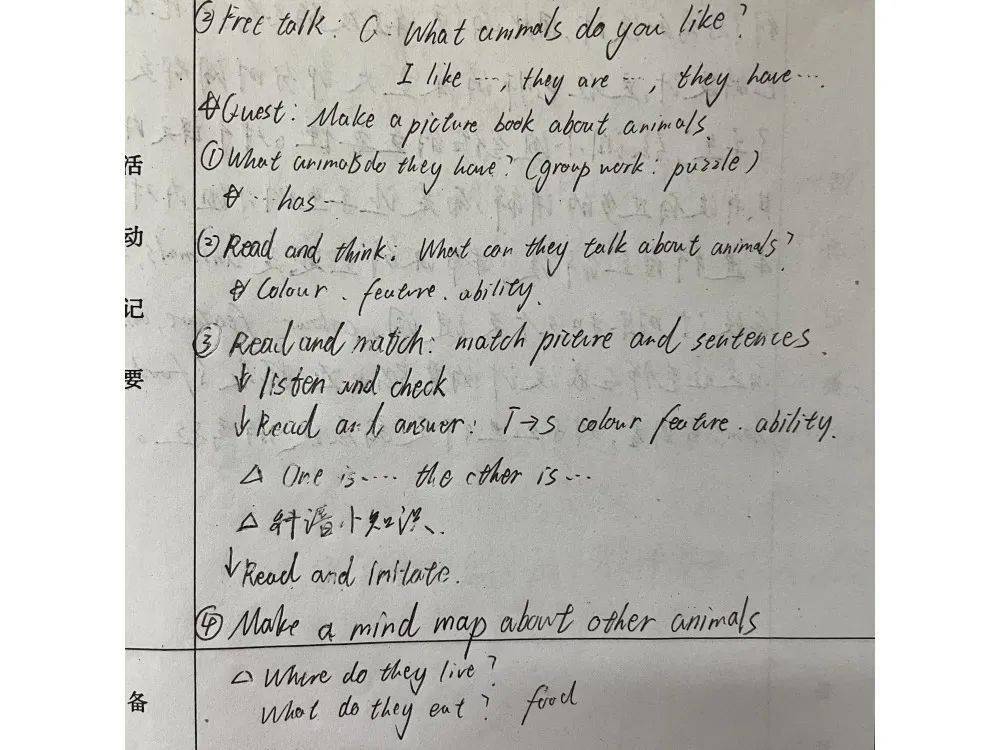 ② Free talk: Q: What animals do you like?
I like ..., they are ..., they have ...
Quest: Make a picture book about animals.
① What animals do they have? (group work: puzzle)
... has ...
② Read and think: What can they talk about animals?
Colour. feature. ability.
③ Read and match: match picture and sentences.
↓ listen and check
↓ Read and answer: T→S colour feature. ability.
△ One is ..... the other is ...
△ 小知识、
↓ Read and imitate.
④ Make a mind map about other animals
△ Where do they live?
What do they eat? food
活
动
记
要
备